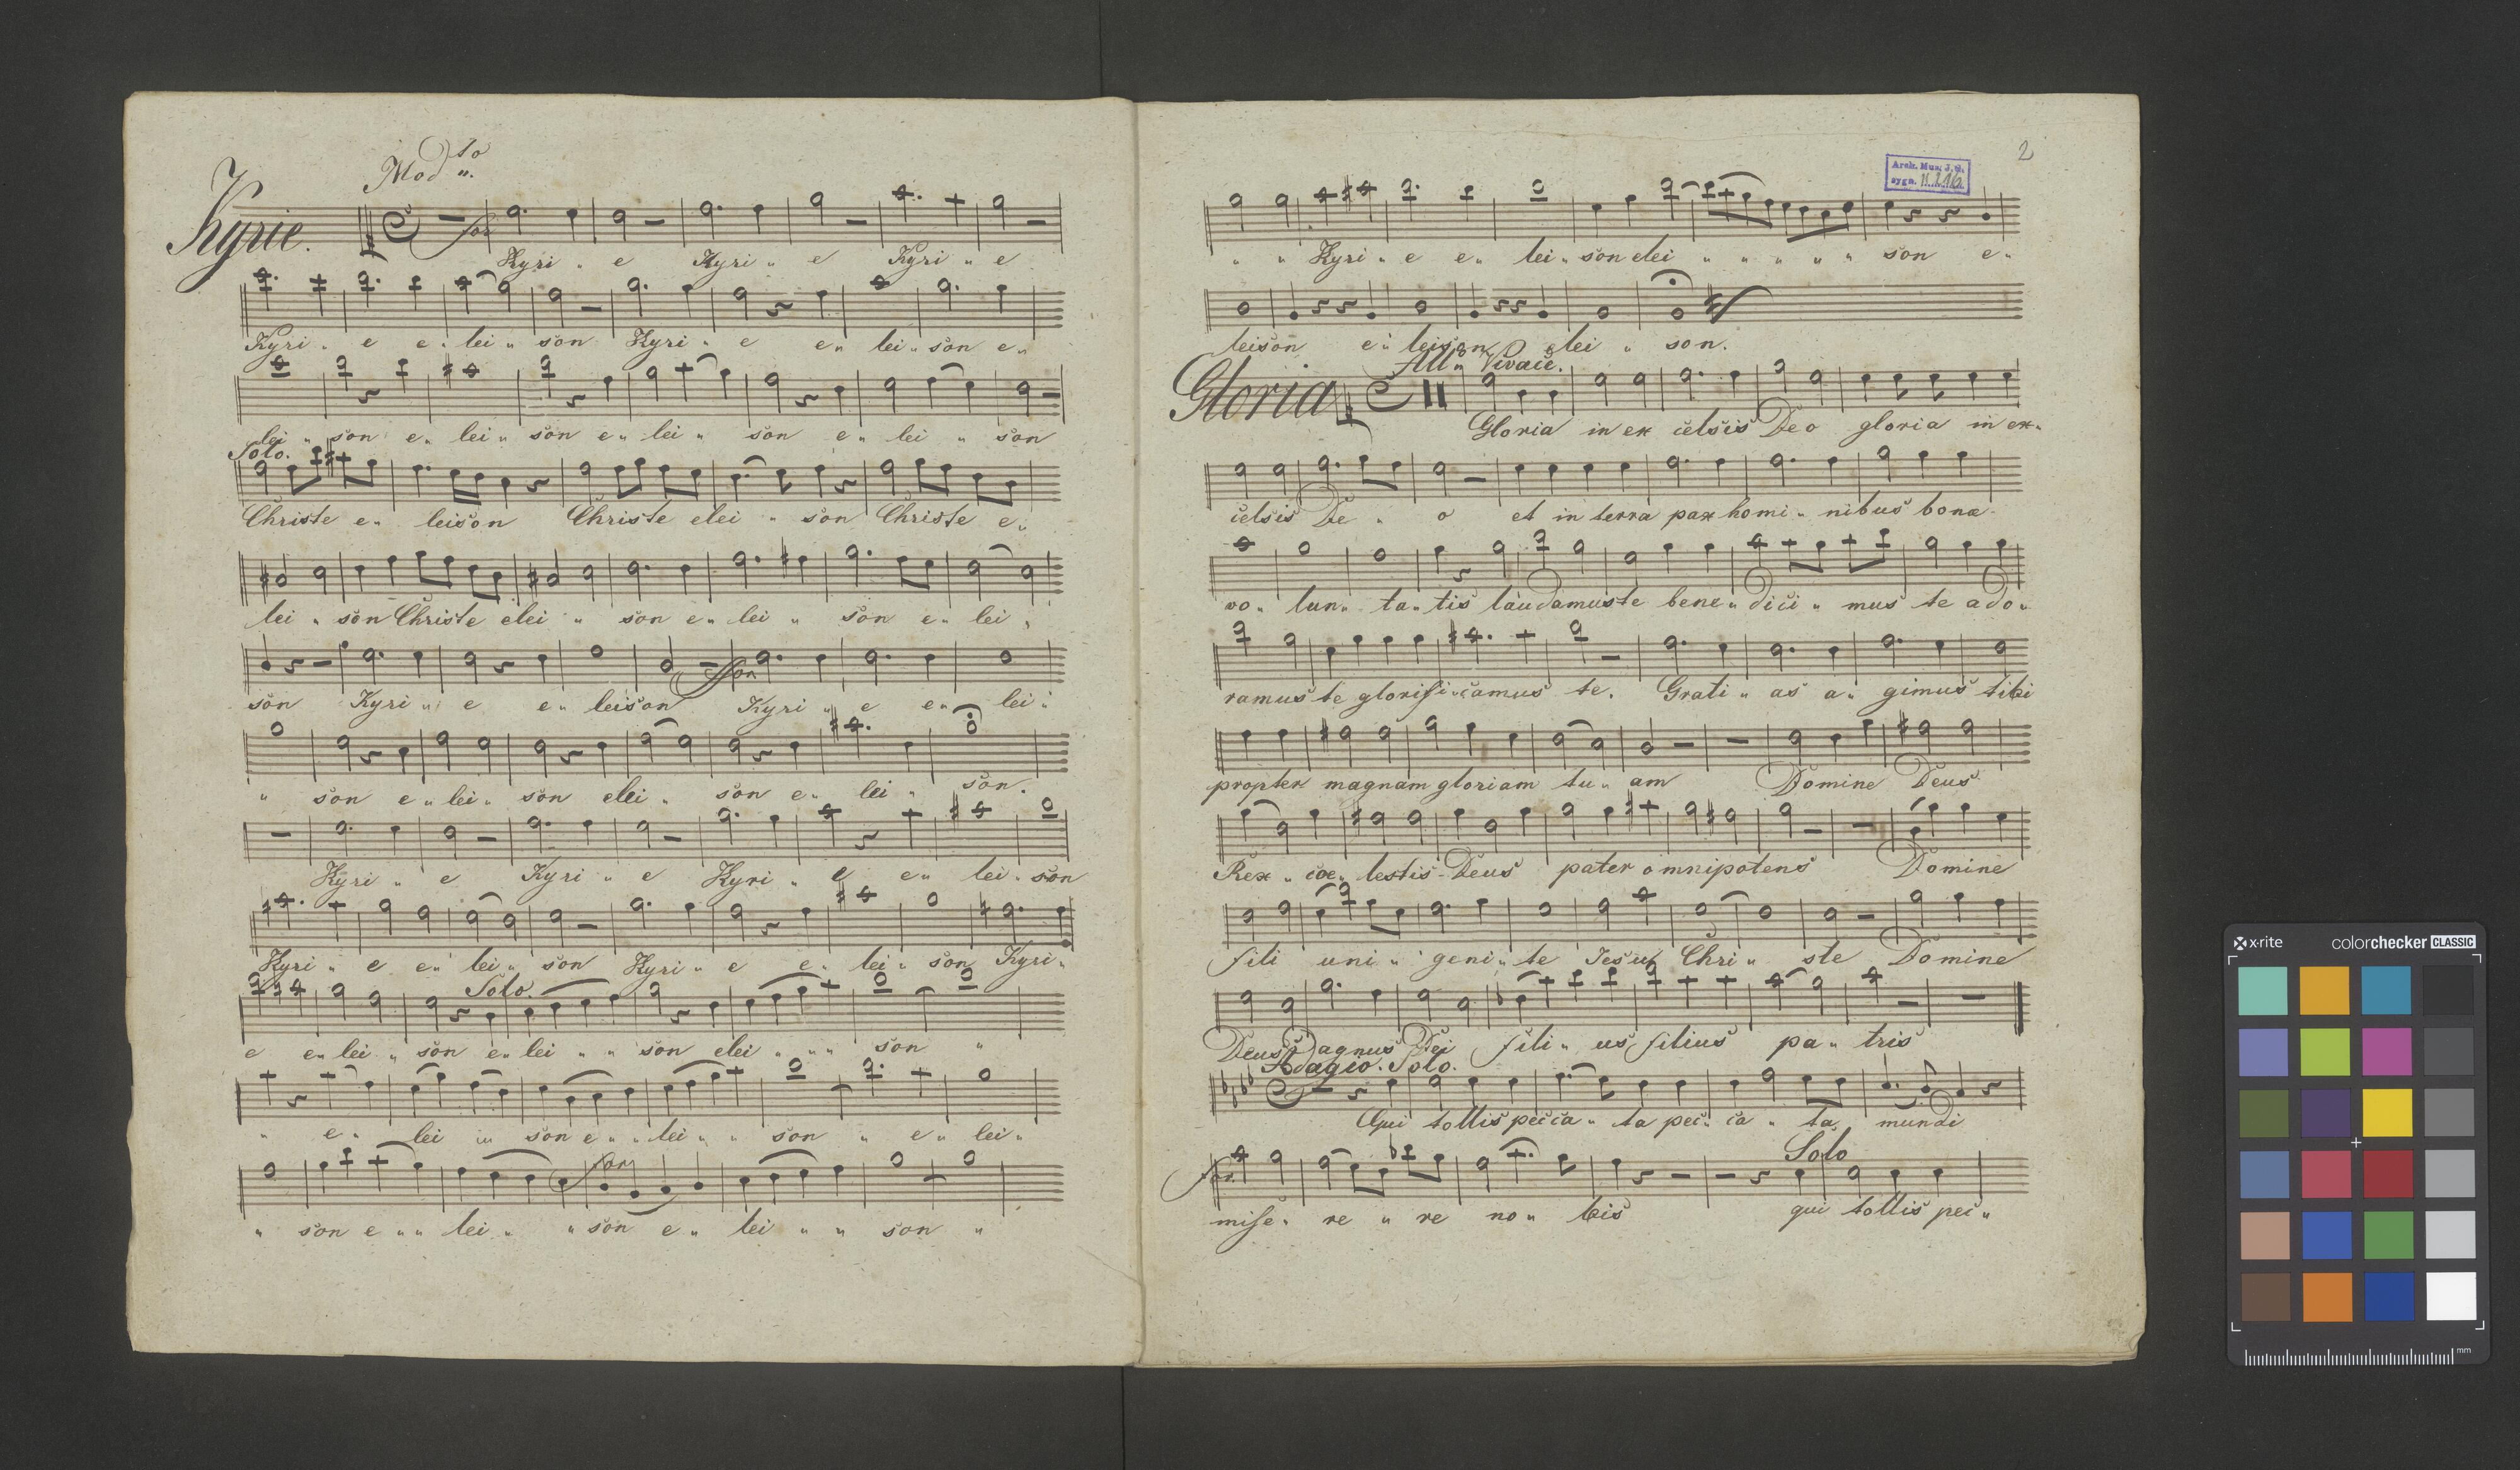 Modto
Kyrie.
for
Kyri " e Kyri " e Kyri " e
Kyri " e e " lei " son Kyri " e e " lei " son e "
lei " son e " lei " son e " lei " son e " lei " son
Solo.
Christe e " leison Christe elei " son Christe e "
lei " son Christe elei " son e " lei " son e " lei "
son Kyri " e e " leison Kyri " e e " lei "
for
" son e " lei " son elei " son e " lei " son.
Kyri " e Kyri " e Kyri " e e " lei " son
Kyri " e e " lei " son Kyri " e e " lei " son Kyri "
Solo.
e e " lei " son e " lei " " son elei " " " son "
" e " lei " son e " " lei " " son " e " lei "
for
" son e " " lei " " son e " lei " " son "
2
Arch. Mus. J. G.
sygn. II.I.16
" " Kyri " e e " lei " son elei " " " " " son e "
leison e " leison elei " son.
Allo Vivace.
Gloria
Gloria in ex celsis Deo gloria in ex "
celsis De " o et in terra pax homi " nibus bonæ
vo " lun " ta " tis laudamus te bene " dici " mus te ado "
ramus te glorifi " camus te. Grati " as a " gimus tibi
propter magnam gloriam tu " am Domine Deus
Rex " coe " lestis Deus pater omnipotens Domine
fili uni " geni " te Jesu Chri " ste Domine
Deus agnus Dei fili " us filius pa " tris
Adagio. Solo.
Qui tollis pecca " ta pec " ca " ta mundi
Solo
for
mise " re " re no " bis qui tollis pec "
x-rite colorchecker CLASSIC
mm